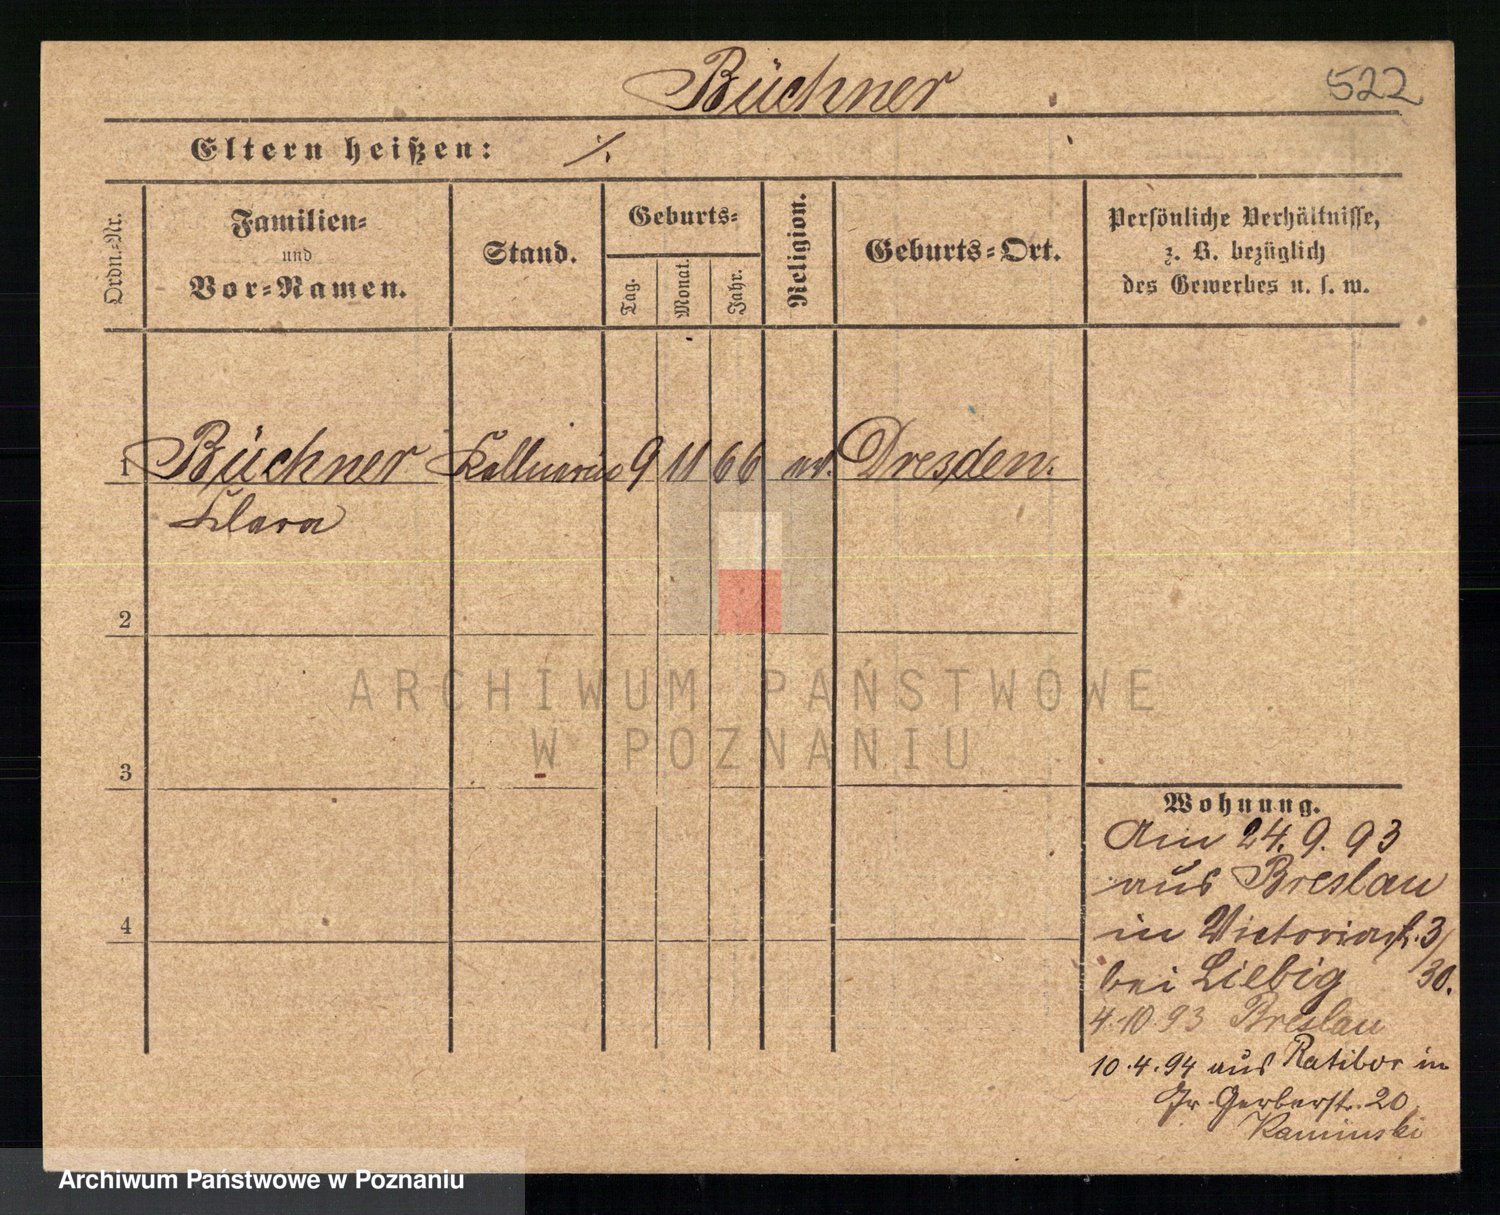 Büchner 522
Eltern heißen: ./.
Ordn.-Nr.
Familien-
und
Vor-Namen.
Stand.
Geburts-
Tag.
Monat.
Jahr.
Religion.
Geburts-Ort.
Persönliche Verhältnisse,
z. B. bezüglich
des Gewerbes u. s. w.
1 Büchner Kellnerin 9 11 66 ev. Dresden.
Clara
2
3
4
Wohnung.
Am 24. 9. 93
aus Breslau
in Victoriastr. 3/
bei Liebig 30.
4.10.93 Breslau
10.4.94 aus Ratibor in
Gr. Gerberstr. 20
Kaminski
ARCHIWUM PAŃSTWOWE
W POZNANIU
Archiwum Państwowe w Poznaniu